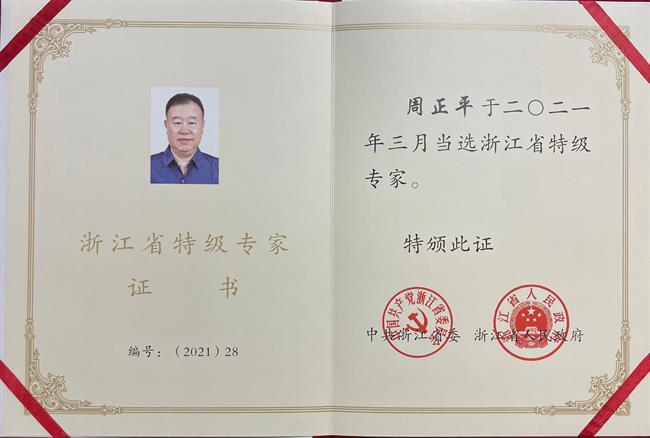 浙江省特级专家
证 书
编号：（2021）28
周正平于二〇二一
年三月当选浙江省特级
专家。
特颁此证
中国共产党浙江省委员会
浙江省人民政府
中共浙江省委 浙江省人民政府